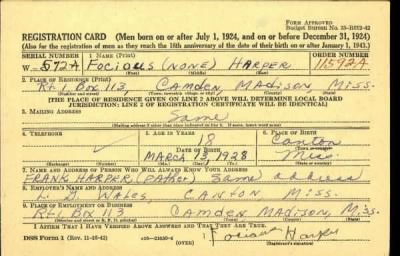 Form Approved
Budget Bureau No. 33-R012-42
REGISTRATION CARD (Men born on or after July 1, 1924, and on or before December 31, 1924)
(Also for the registration of men as they reach the 18th anniversary of the date of their birth on or after January 1, 1943.)
SERIAL NUMBER 1. NAME (Print) ORDER NUMBER
W-572A Focious (NONE) HARPER 11592A
(First) (Middle) (Last)
2. PLACE OF RESIDENCE (Print)
Rt. 1 Box 113, Camden, Madison, Miss.
(Number and street) (County) (State)
[THE PLACE OF RESIDENCE GIVEN ON LINE 2 ABOVE WILL DETERMINE LOCAL BOARD
JURISDICTION; LINE 2 OF REGISTRATION CERTIFICATE WILL BE IDENTICAL]
3. MAILING ADDRESS
Same
[Mailing address if other than place indicated on line 2. If same, insert word same]
4. TELEPHONE 5. AGE IN YEARS 6. PLACE OF BIRTH
18 Canton
DATE OF BIRTH
MARCH 13, 1928 Miss.
(Exchange) (Number) (Mo.) (Day) (Yr.) (State or country)
7. NAME AND ADDRESS OF PERSON WHO WILL ALWAYS KNOW YOUR ADDRESS
FRANK HARPER (Father) Same address
8. EMPLOYER'S NAME AND ADDRESS
Wales CANTON, Miss.
9. PLACE OF EMPLOYMENT OR BUSINESS
Rt. 1 Box 113 Camden, Madison, Miss.
(Number and street or R. F. D. number) (Town) (County) (State)
I AFFIRM THAT I HAVE VERIFIED ABOVE ANSWERS AND THAT THEY ARE TRUE.
DSS Form 1 (Rev. 11-16-42) (OVER) Focious Harper
(Registrant's signature)